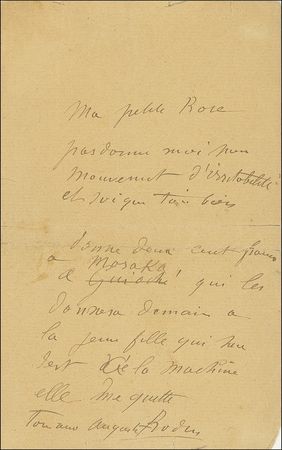 Ma petite Rose
pardonne moi mon
mouvement d'irritabilité
et soigne toi bien
donne deux cent francs
a
qui les
donnera demain a
la jeune fille qui
sert la machine
elle me quitte
Ton ami Auguste Rodin